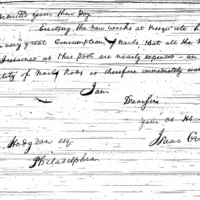 from their Pay
Erecting the new works at Presqu'ile h
very great Consumption of Nails, that all the
Instance at this post are nearly expended an
tity of Nail Rods is therefore immediately wan
I am
Dear Sir
your ob
Isaac
Hodgdon Esq
Philadelphia